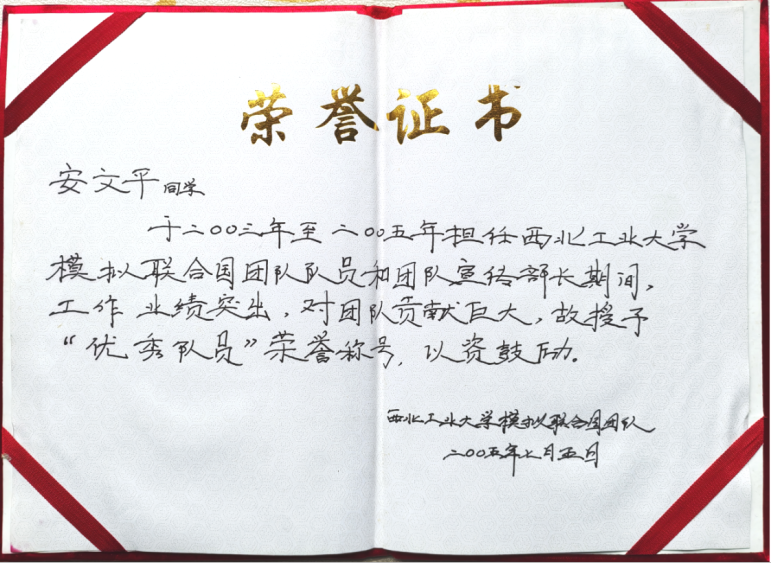 荣誉证书
安文平同学
于二〇〇三年至二〇〇五年担任西北工业大学
模拟联合国团队队员和团队宣传部长期间，
工作业绩突出，对团队贡献巨大，故授予
“优秀队员”荣誉称号，以资鼓励。
西北工业大学模拟联合国团队
二〇〇五年七月五日